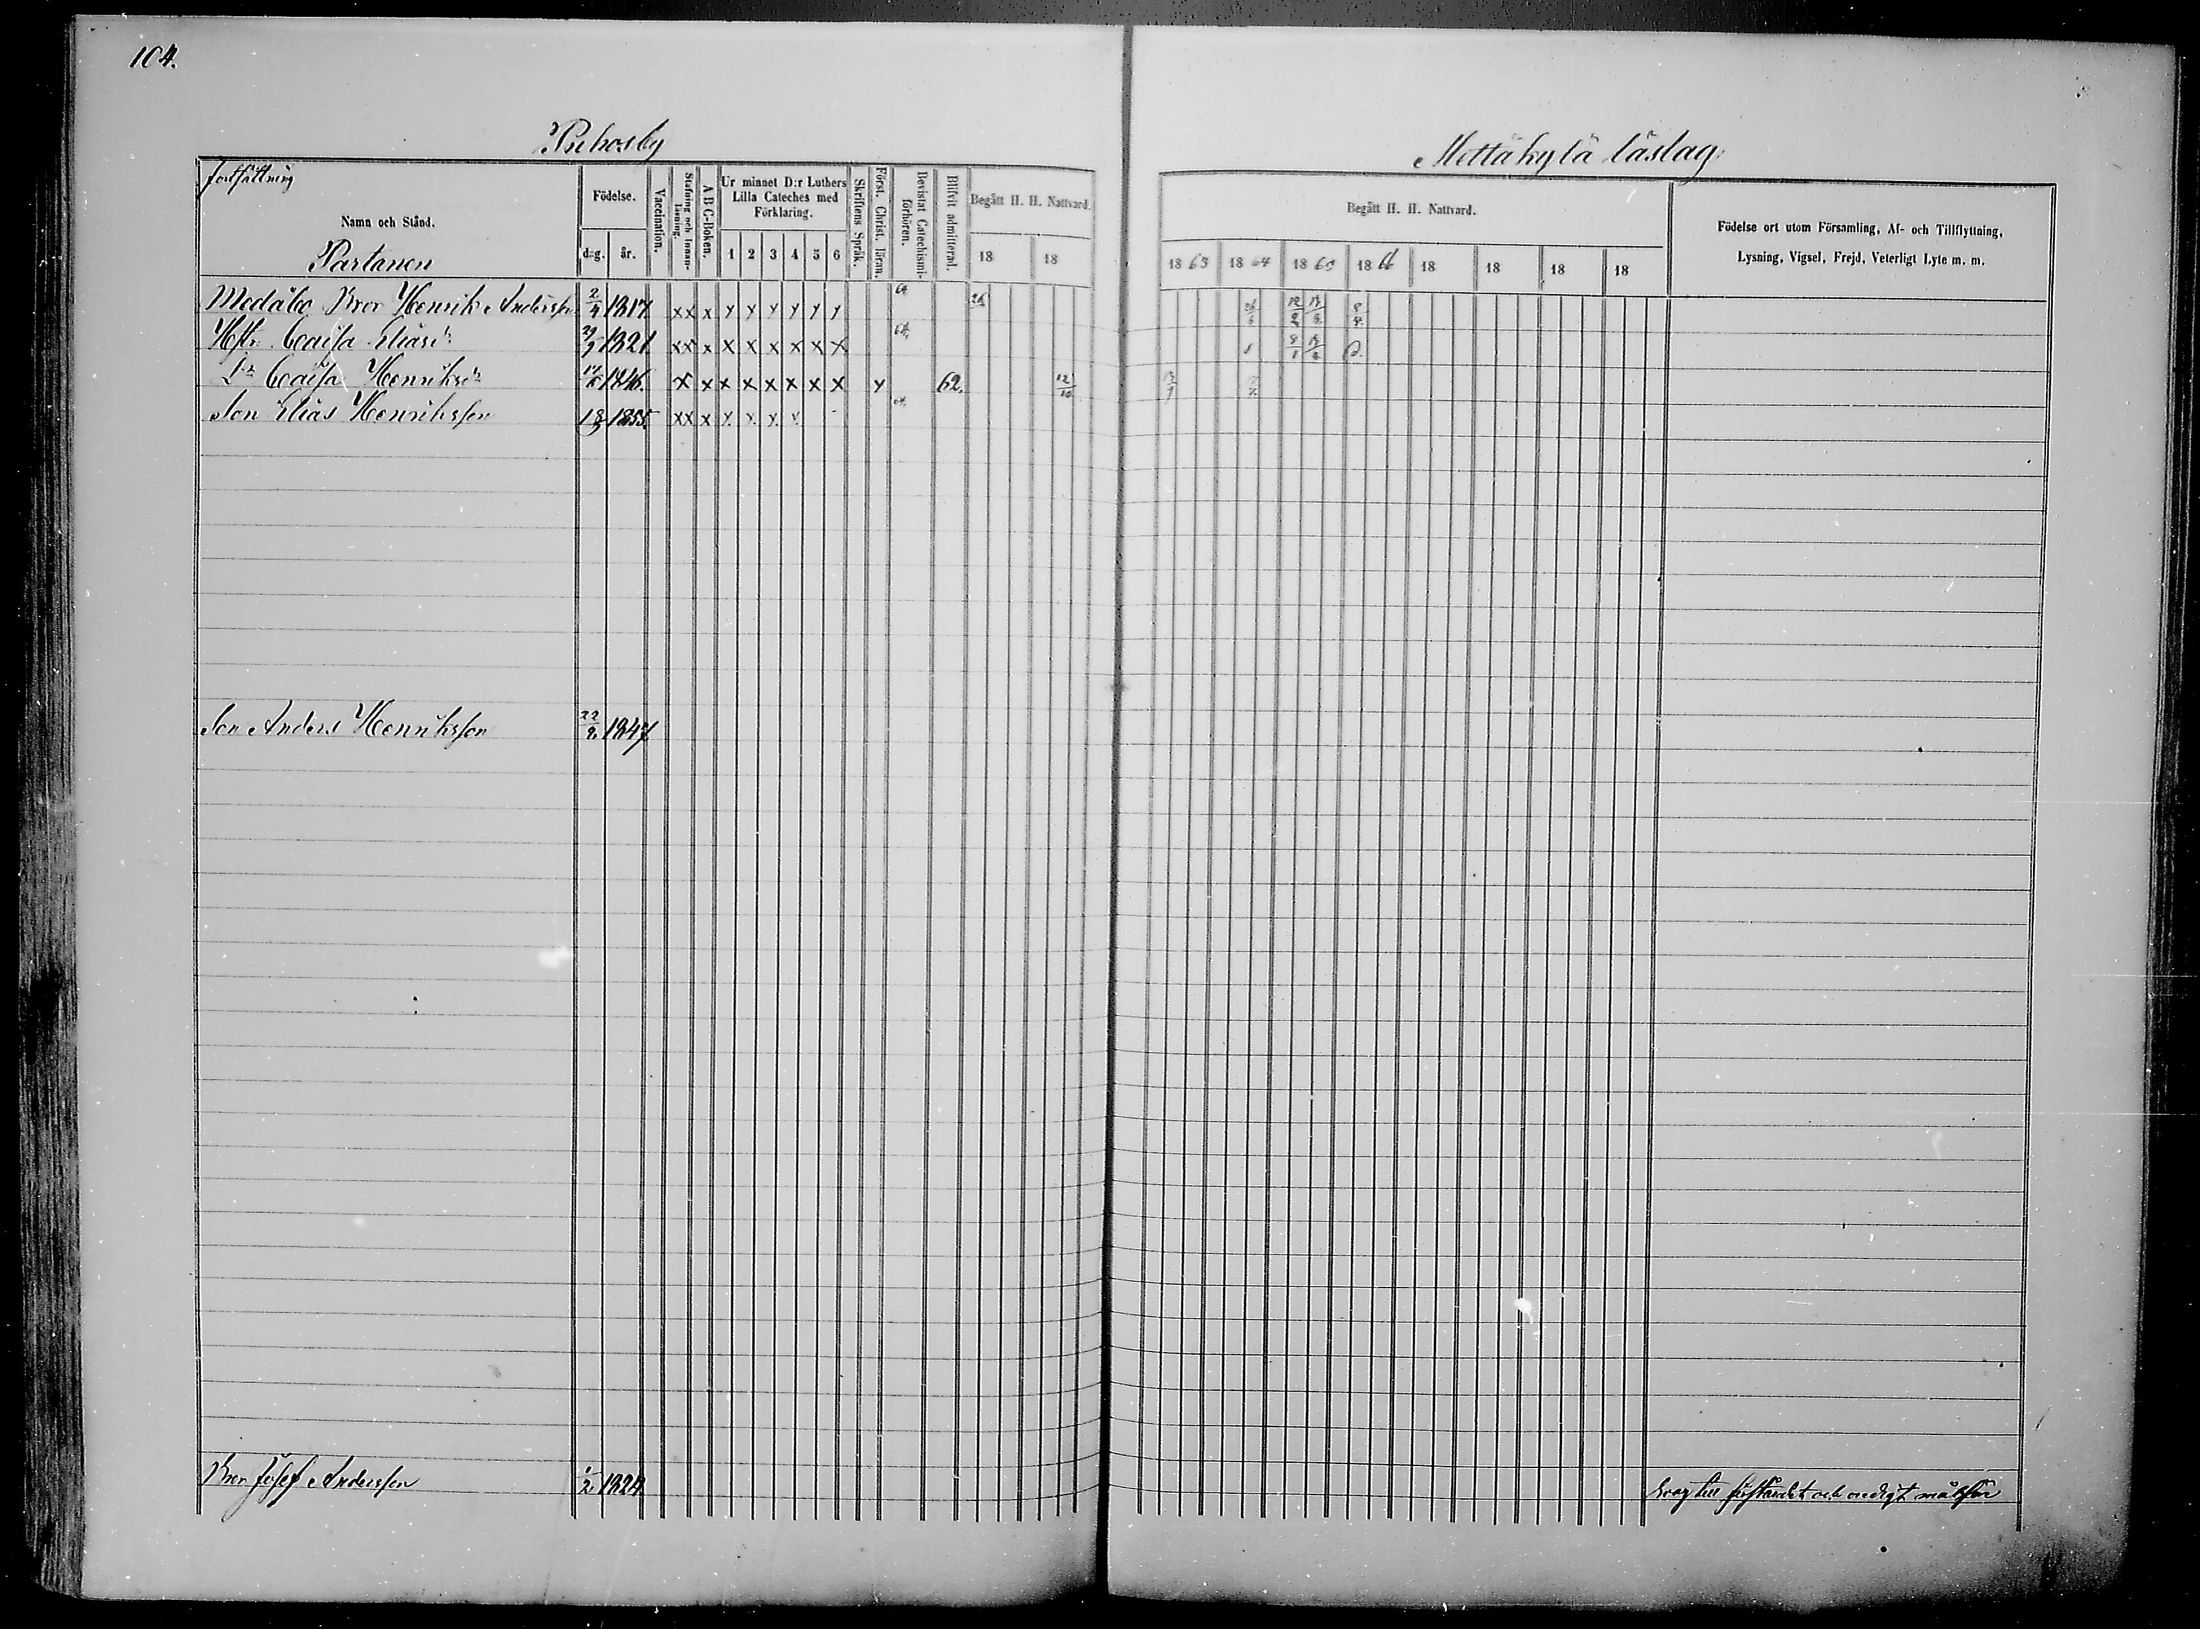 104.
Puhosby
Mettäkylä läslag
fortsättning
Namn och Stånd.
Partanen
Födelse.
dag. år.
Vaccination.
Stafning och Innanläsning.
A B C-Boken.
Ur minnet D:r Luthers Lilla Cateches med Förklaring.
1 2 3 4 5 6
Skriftens Språk.
Först. Christ. läran.
Bevistat Catechismiförhören.
Blifvit admitterad.
Begått H. H. Nattvard.
18 18
Begått H. H. Nattvard.
1863 1864 1865 1866 18 18 18 18
Födelse ort utom Församling, Af- och Tillflyttning,
Lysning, Vigsel, Frejd, Veterligt Lyte m. m.
Bror Henrik Andersson 2/4 1817. xx x y y y y y y
Hstr Caisa Eliasdr 1821. xx x x x x x x x
Dr Caisa Henriksdr 1846. x x x x x x x x y 62. 12/10
Son Elias Henriksson 1855. xx x y y y y
Son Anders Henriksson 22/2 1847
Bror Josef Andersson 1/2 1824.
Svag till förståndet och